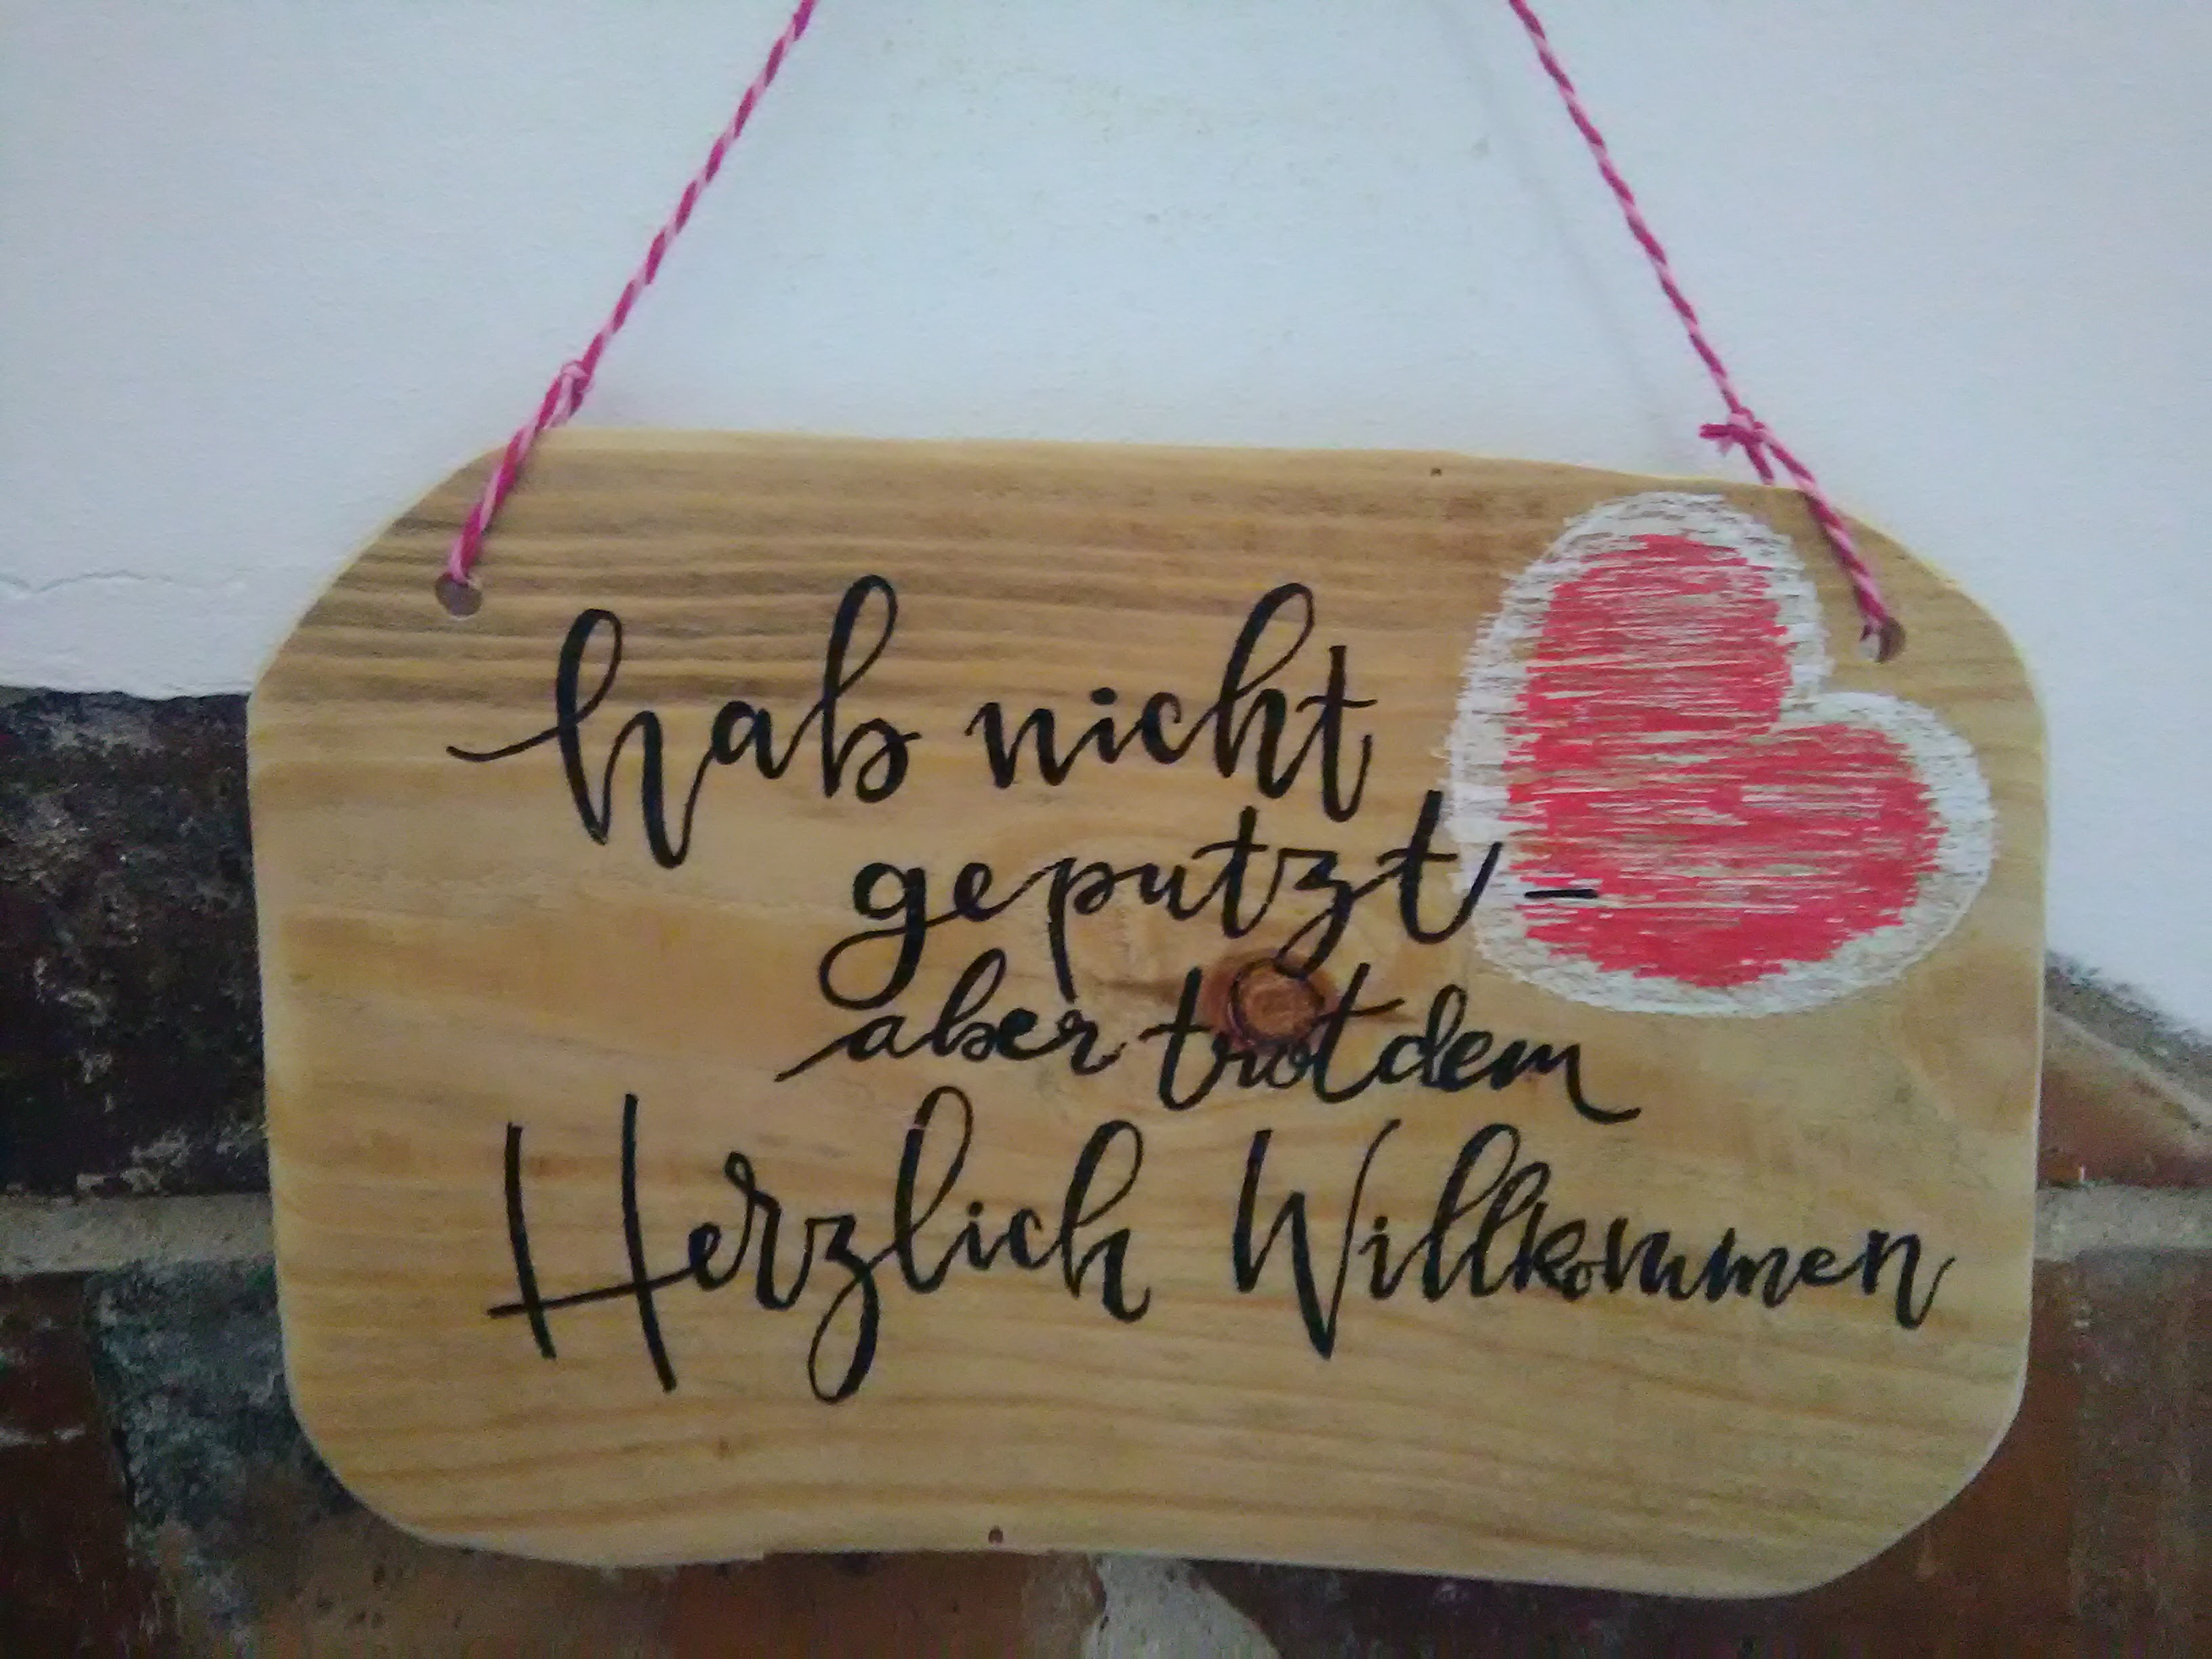 hab nicht
geputzt –
aber trotdem
Herzlich Willkommen